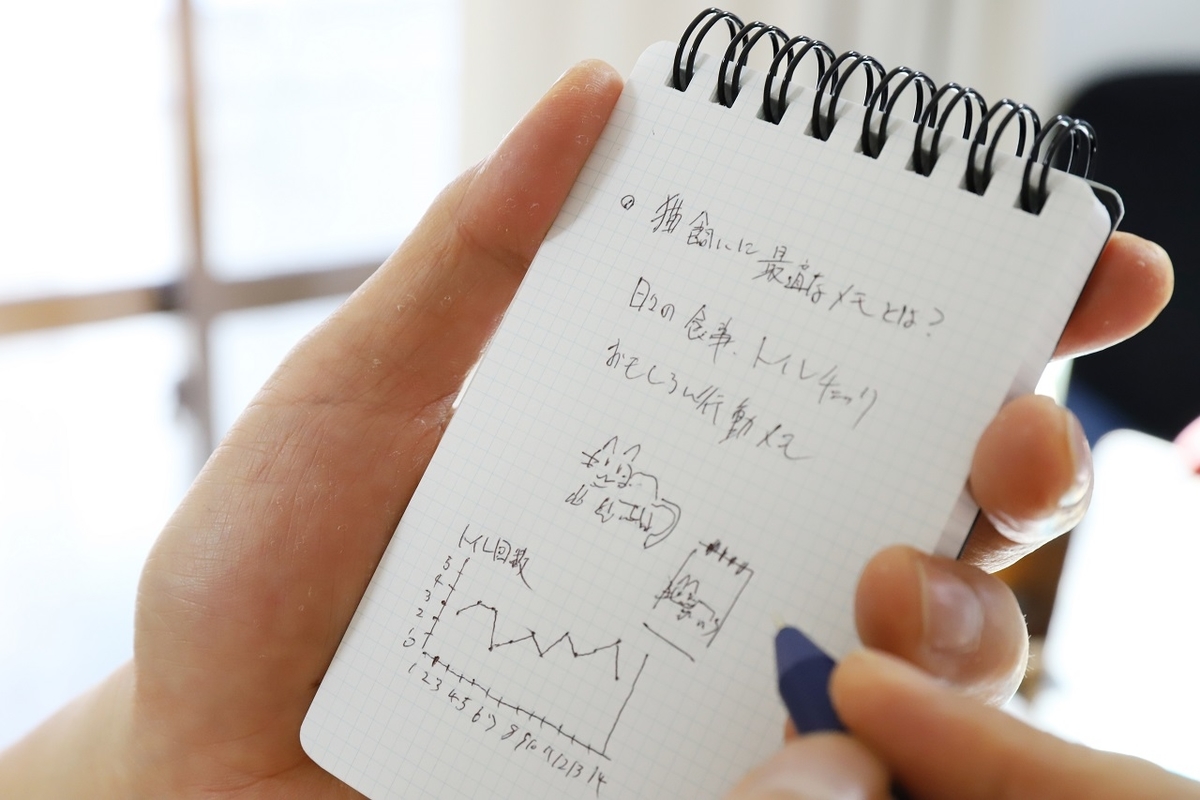 猫飼いに最適なメモとは？
日々の食事、トイレチェック
おもしろい行動メモ
トイレ回数
5
4
3
2
1 2 3 4 5 6 7 8 9 10 11 12 13 14